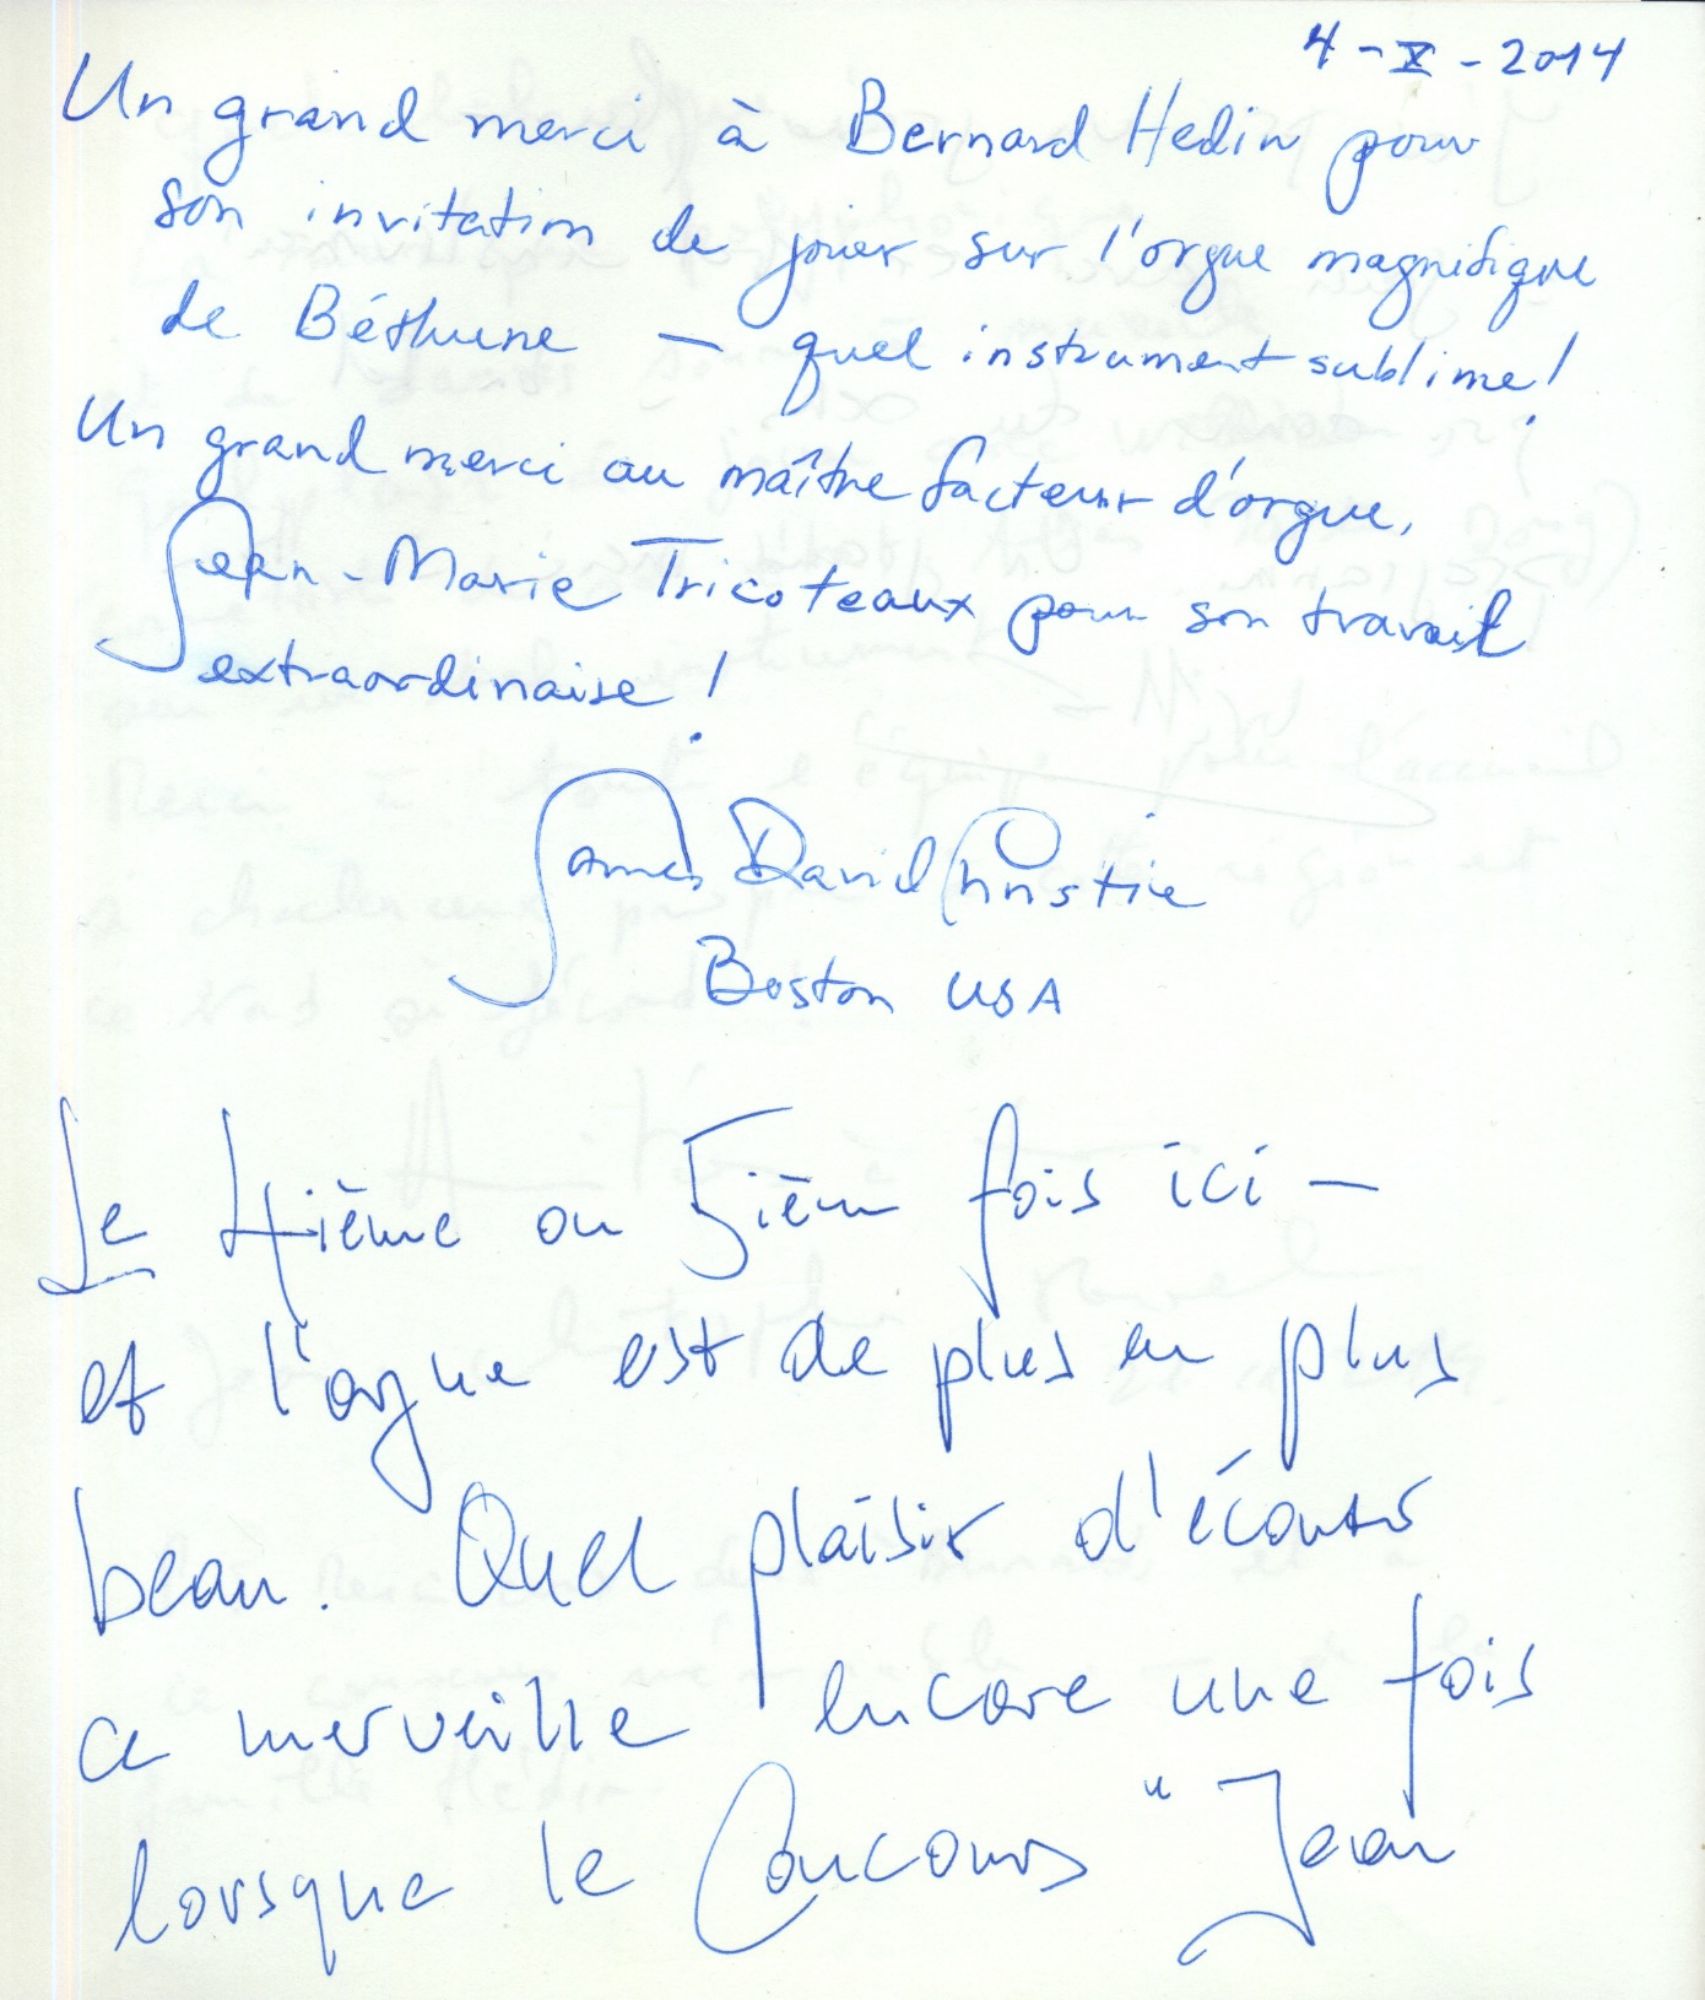 4 - X - 2014
Un grand merci à Bernard Hedin pour
son invitation de jouer sur l'orgue magnifique
de Béthune — quel instrument sublime!
Un grand merci au maître facteur d'orgue,
Jean-Marie Tricoteaux pour son travail
extraordinaire!
James David Christie
Boston USA
Le 4ième ou 5ièm fois ici —
et l'orgue est de plus en plus
beau. Quel plaisir d'écouter
ce merveille encore une fois
lorsque le Concours "Jean